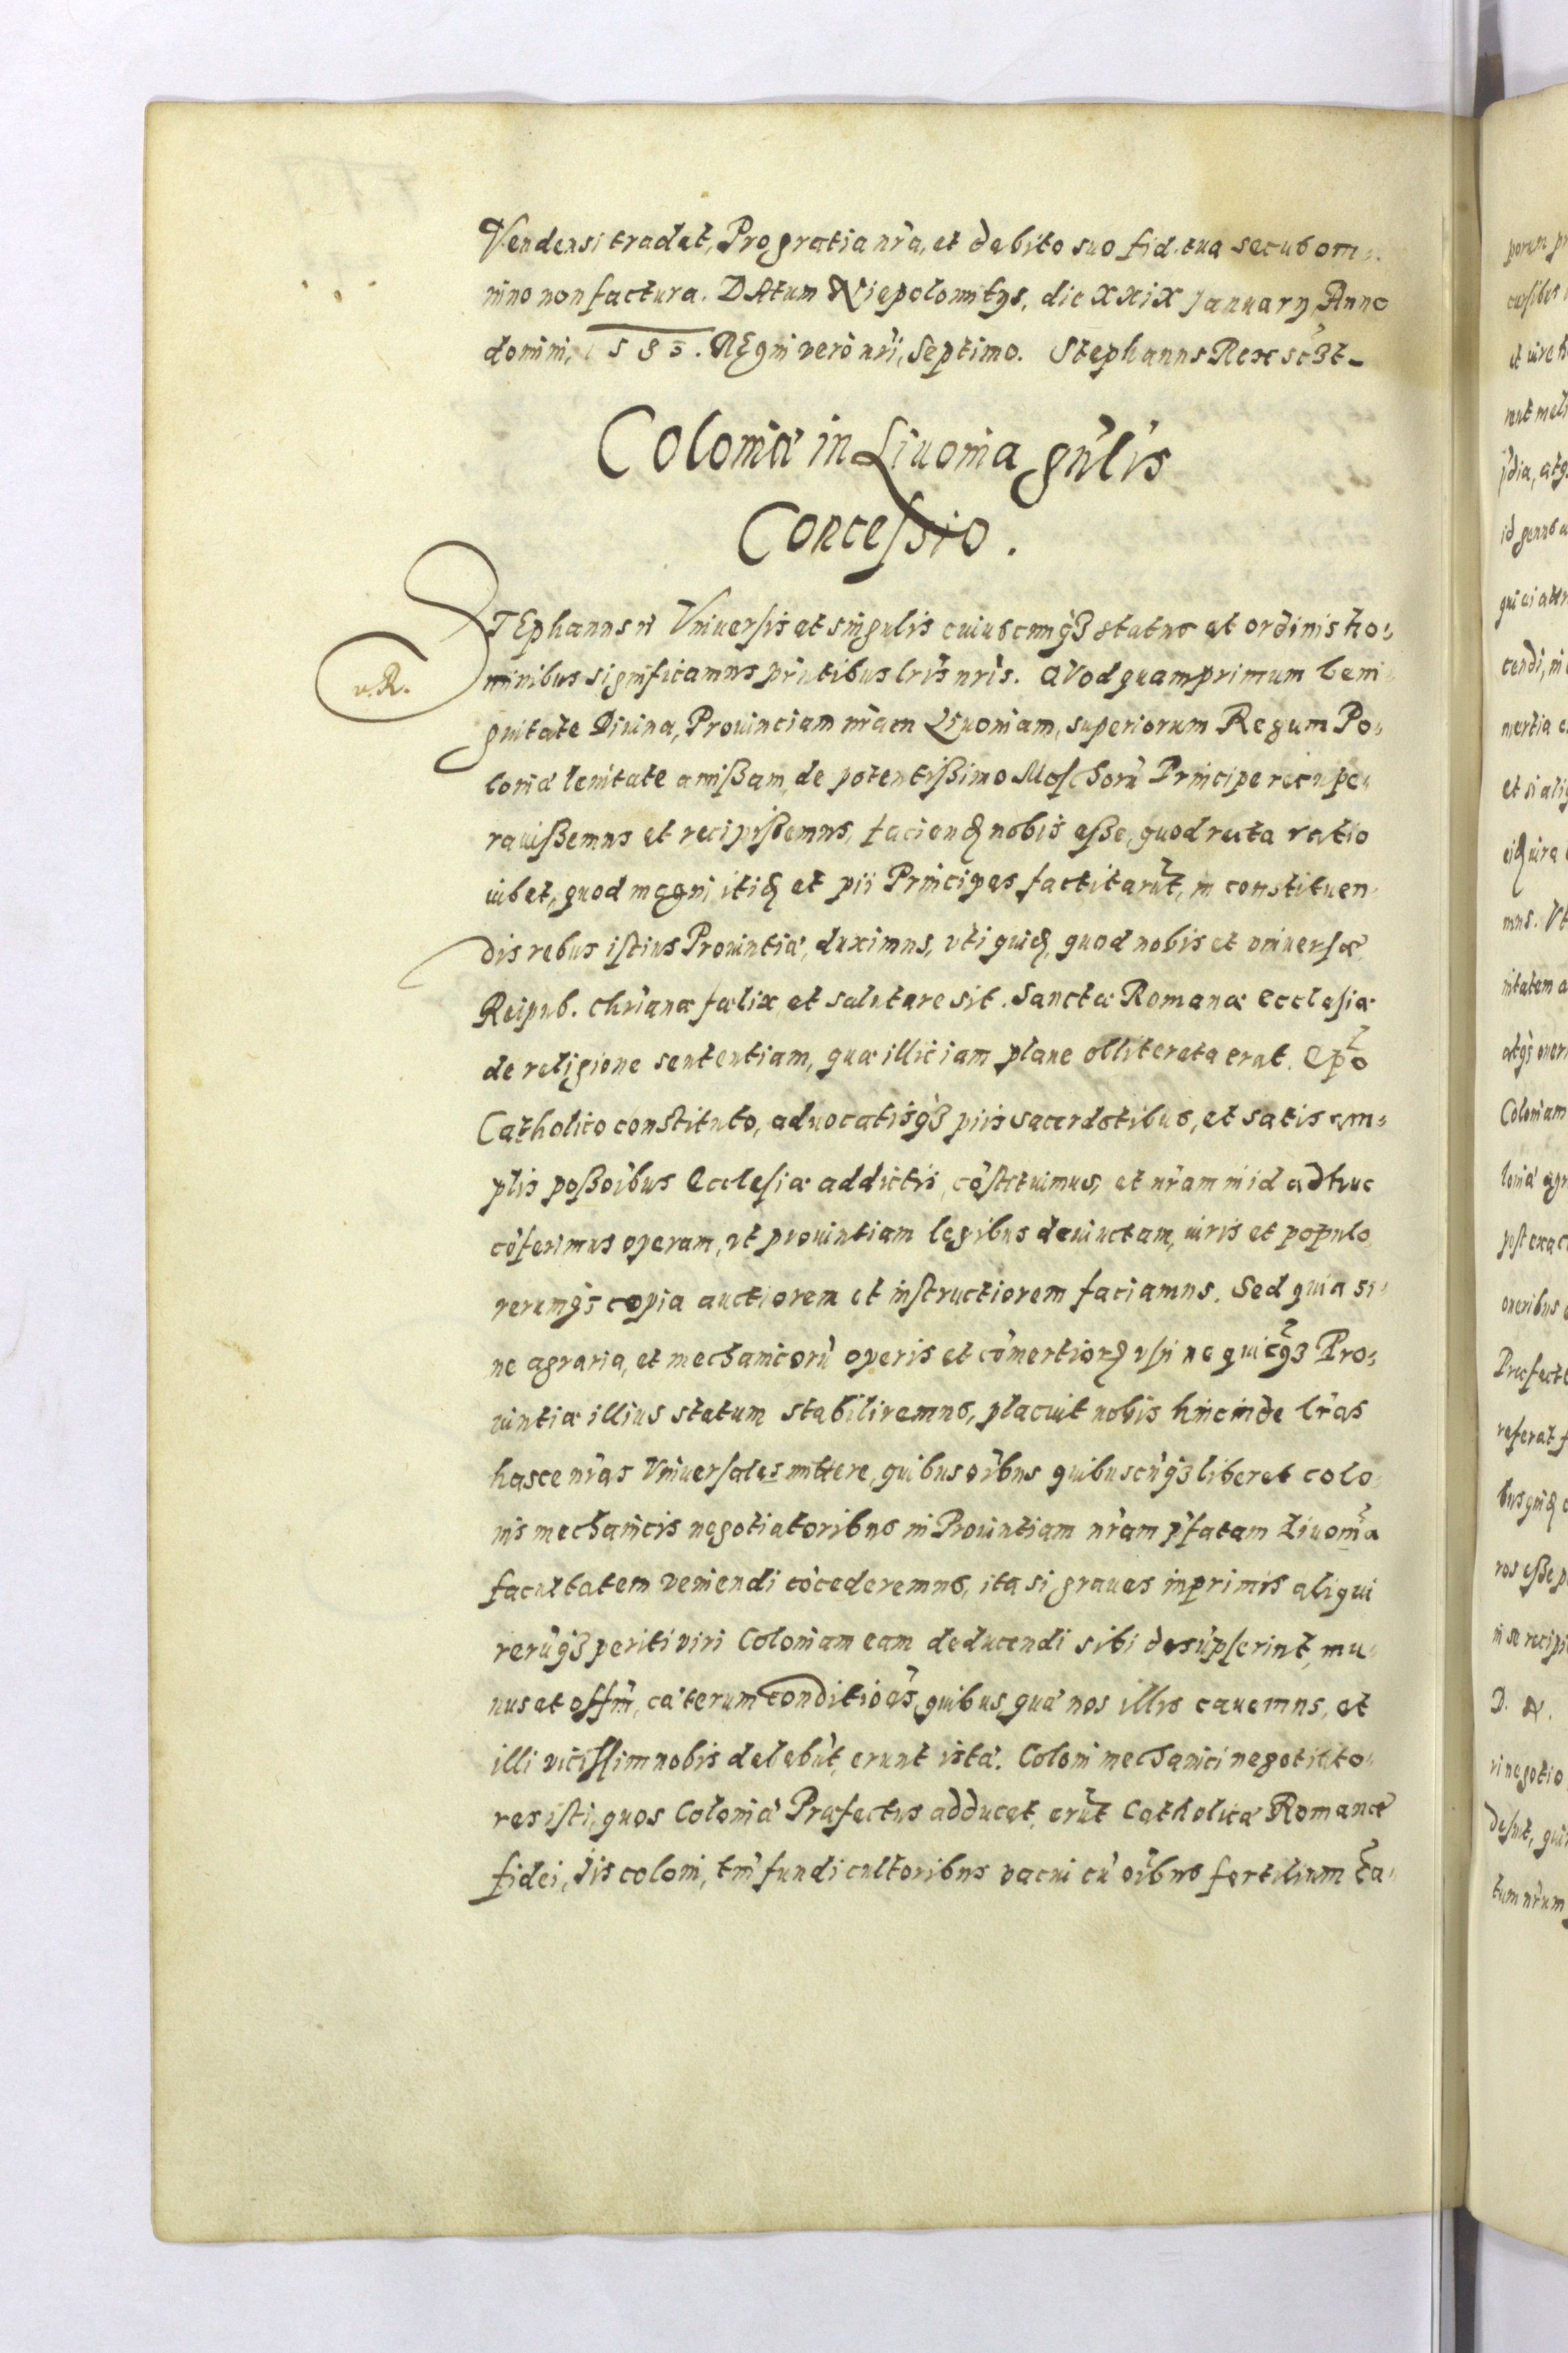 Vendensi tradat, Pro gratia nr̃a, et debito suo fid. tua secus om-
nino non factura. DAtum Niepolomitÿs, die XXIX Januarÿ Anno
domini, 1583. REgni vero nr̃i, Septimo. Stephanus Rex sc̃zt_
Coloniæ in Liuonia gñlis
Concessio.
STEphanus &c Vniuersis et singulis cuiuscunqꝫ status et ordinis ho-
minibus significamus pñtibus lr̃is nr̃is. QVod quamprimum beni-
u. R.
gnitate Diuina, Prouinciam nr̃am Liuoniam, superiorum Regum Po-
loniæ lenitate amißam, de potentißimo Moschorũ Principe recupe-
raußemus et recipißemus, faciendꝫ nobis eße, quod recta ratio
iubet, quod magni itidꝫ et pii Principes factitarũt, in constituen-
dis rebus istius Prouintiæ, duximus, vti quidꝫ, quod nobis et vniuersæ
Reipub. Chr̃ianæ fœlix et salutare sit. Sanctæ Romanæ Ecclesiæ
de religione sententiam, quæ illic iam plane obliterata erat. Ep̃o
Catholico constituto, aduocatisqꝫ piis sacerdotibus, et satis am-
plis poßoĩbus Ecclesiæ addictis, cõstituimus, et nr̃am in id adhuc
cõferimus operam, vt prouintiam legibus deuinctam, uiris et populo
rerumqꝫ copia auctiorem et instructiorem faciamus. Sed quia si-
ne agraria, et mechanicorũ operis et cõmertiorꝫ vsu nequic̃qꝫ Pro-
uintiæ illius statum stabiliremus, placuit nobis hincinde lr̃as
hasce nr̃as Vniuersales mittere, quibus oĩbus quibuscũqꝫ liberet colo-
nis mechanicis negotiatoribus in Prouintiam nr̃am p̃fatam Liuoniã
facultatem veniendi cõcederemus, ita si graues inprimis aliqui
rerũqꝫ periti viri Coloniam eam deducendi sibi desũpserint, mu-
nus et offm̃, cæterum conditiões, quibus quæ nos illis cauemus, et
illi vicissim nobis debebũt, erunt istæ. Coloni mechanici negotiato-
res isti, quos Coloniæ Præfectus adducet, erũt Catholicæ Romanæ
fidei, Jis coloni, tm̃ fundi cultoribus vacui cũ oĩbus fertilium ca-